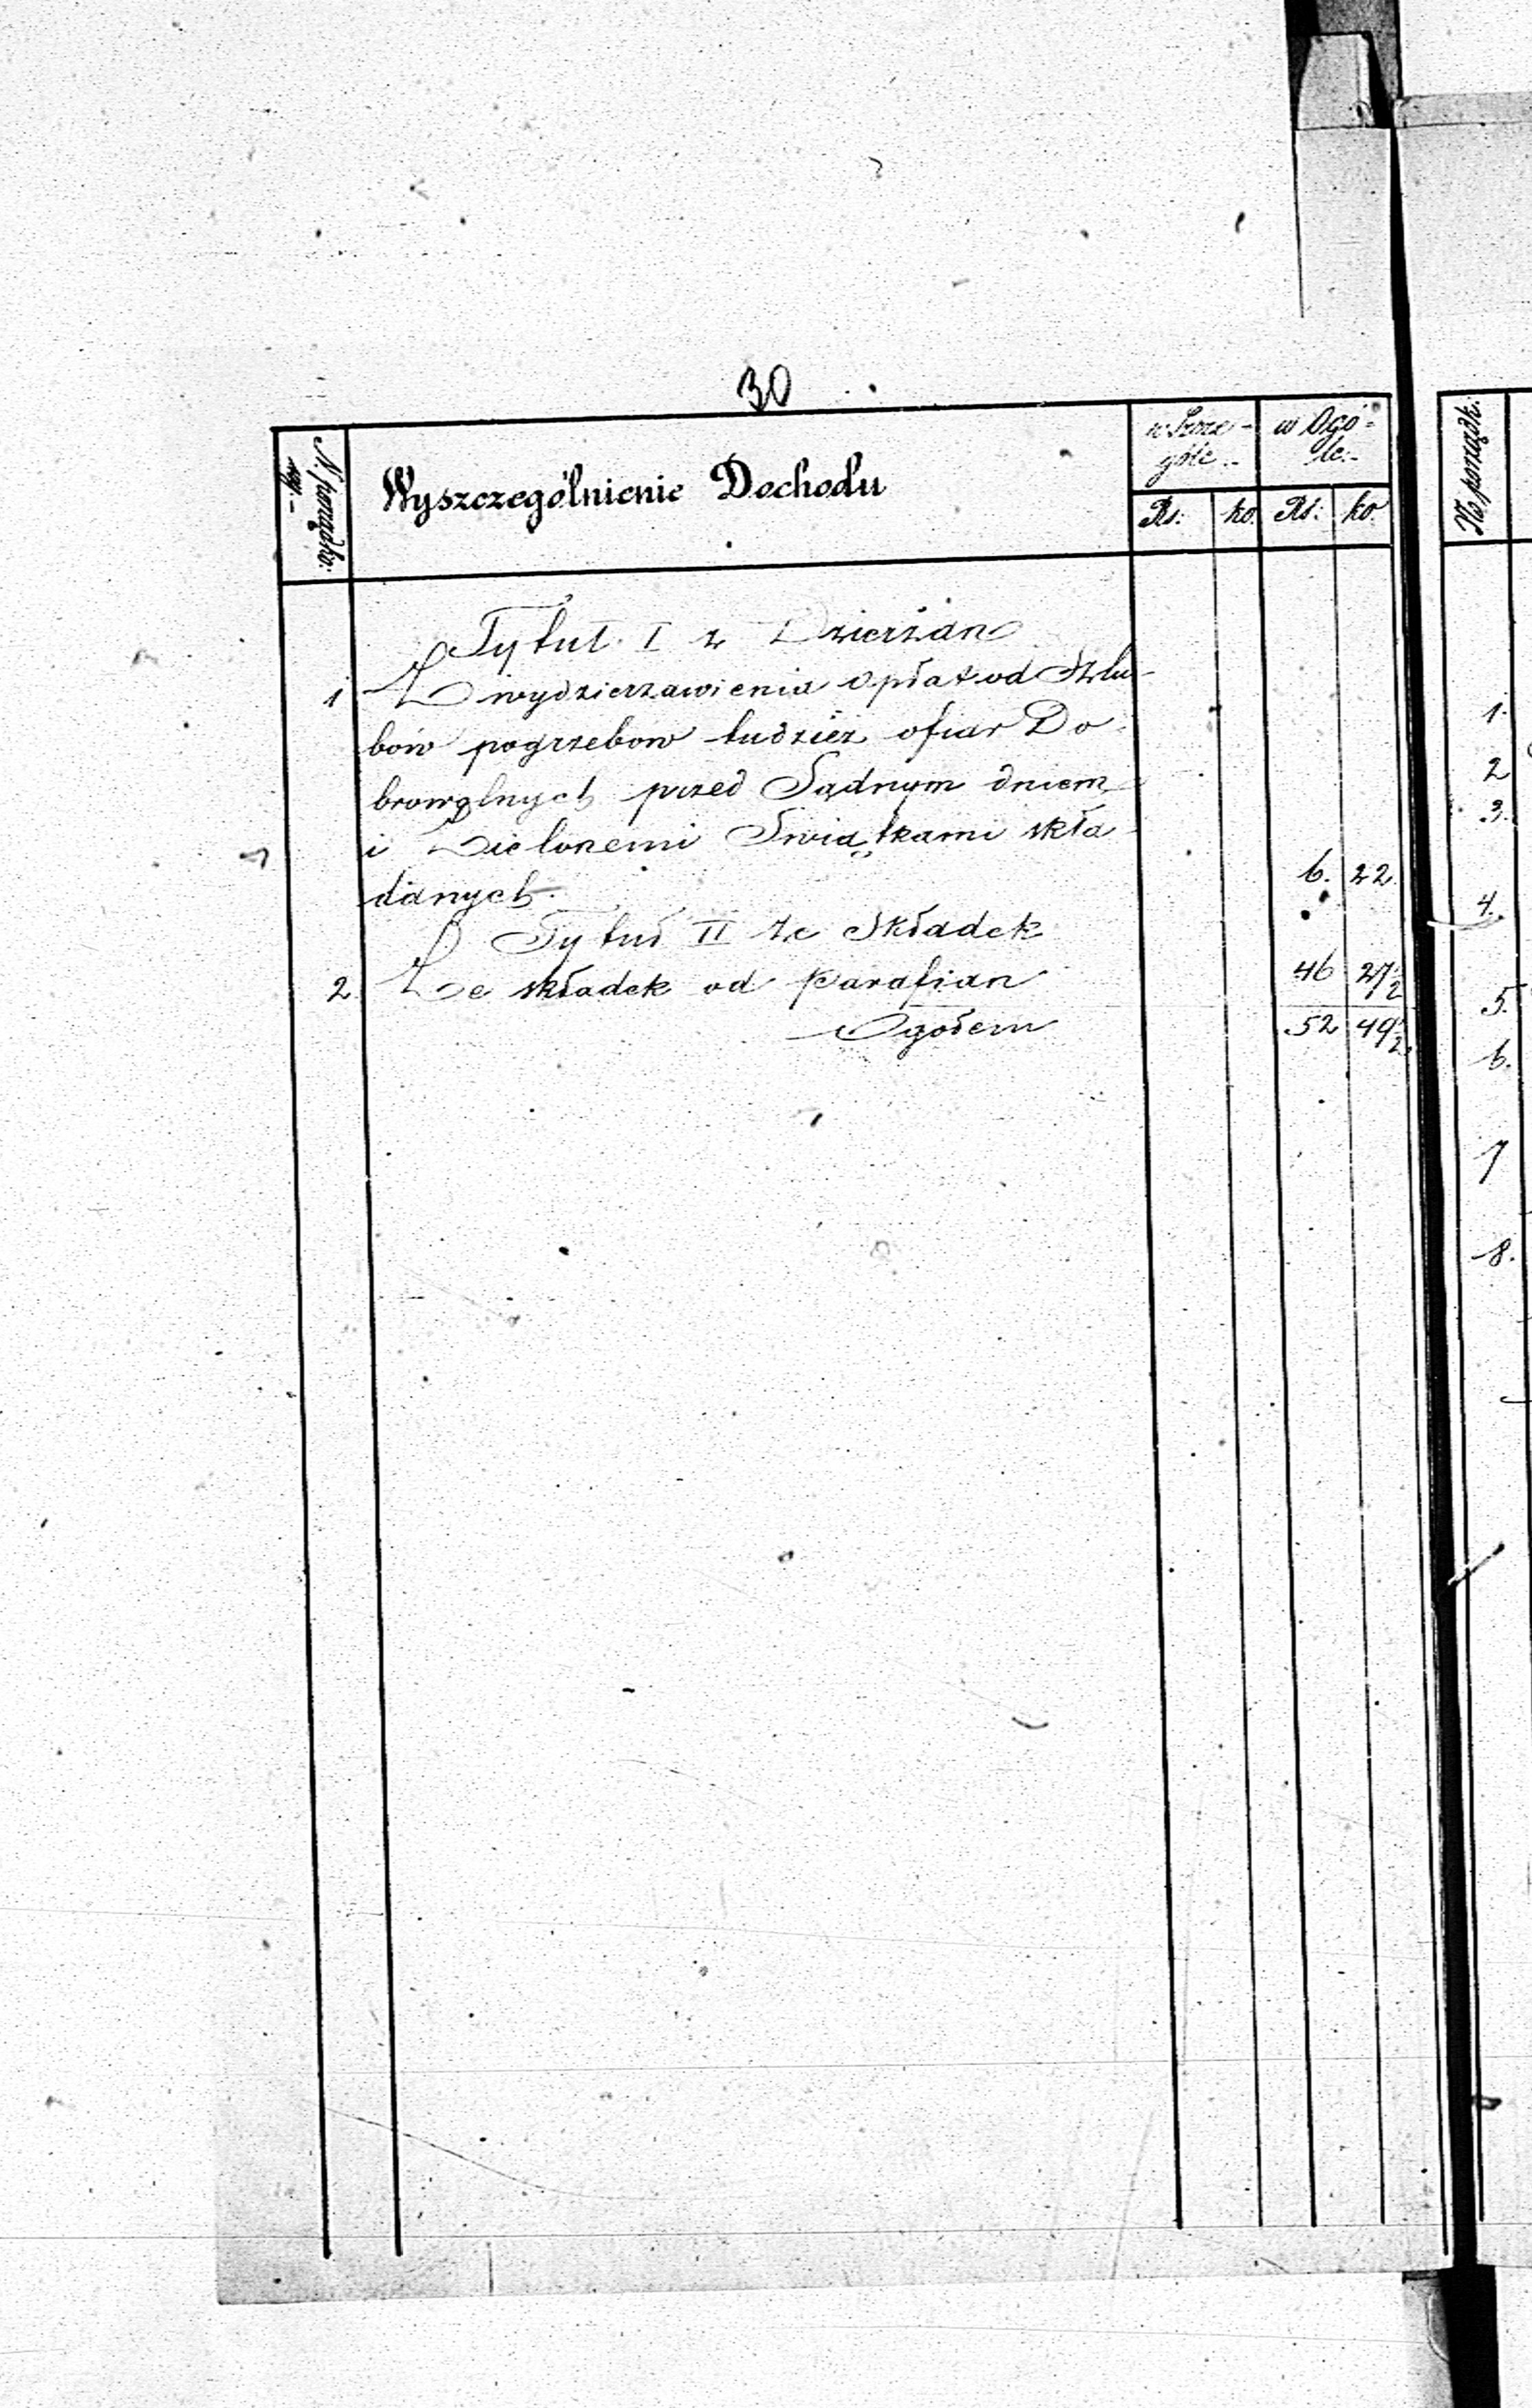 30
N. porządko-
wy.-
Wyszczególnienie Dochodu
w Szcze-
góle.-
w Ogó-
le.-
Rs: ko. Rs: ko.
Tytuł I z Dzierżaw
1 Z wydzierzawienia opłat od Szlu-
bów pogrzebow tudzież ofiar Do-
browolnych przed Sądnym dniem
i Zielonemi Swiątkami skła-
danych. 6. 22.
Tytuł II ze Składek
2 Ze składek od parafian 46 27½
Ogołem 52 49½
No porządk:
1.
2
3.
4.
5.
6.
7
8.